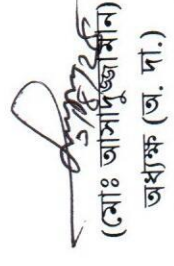 (মোঃ আসাদুজ্জামান)
অধ্যক্ষ (অ. দা.)